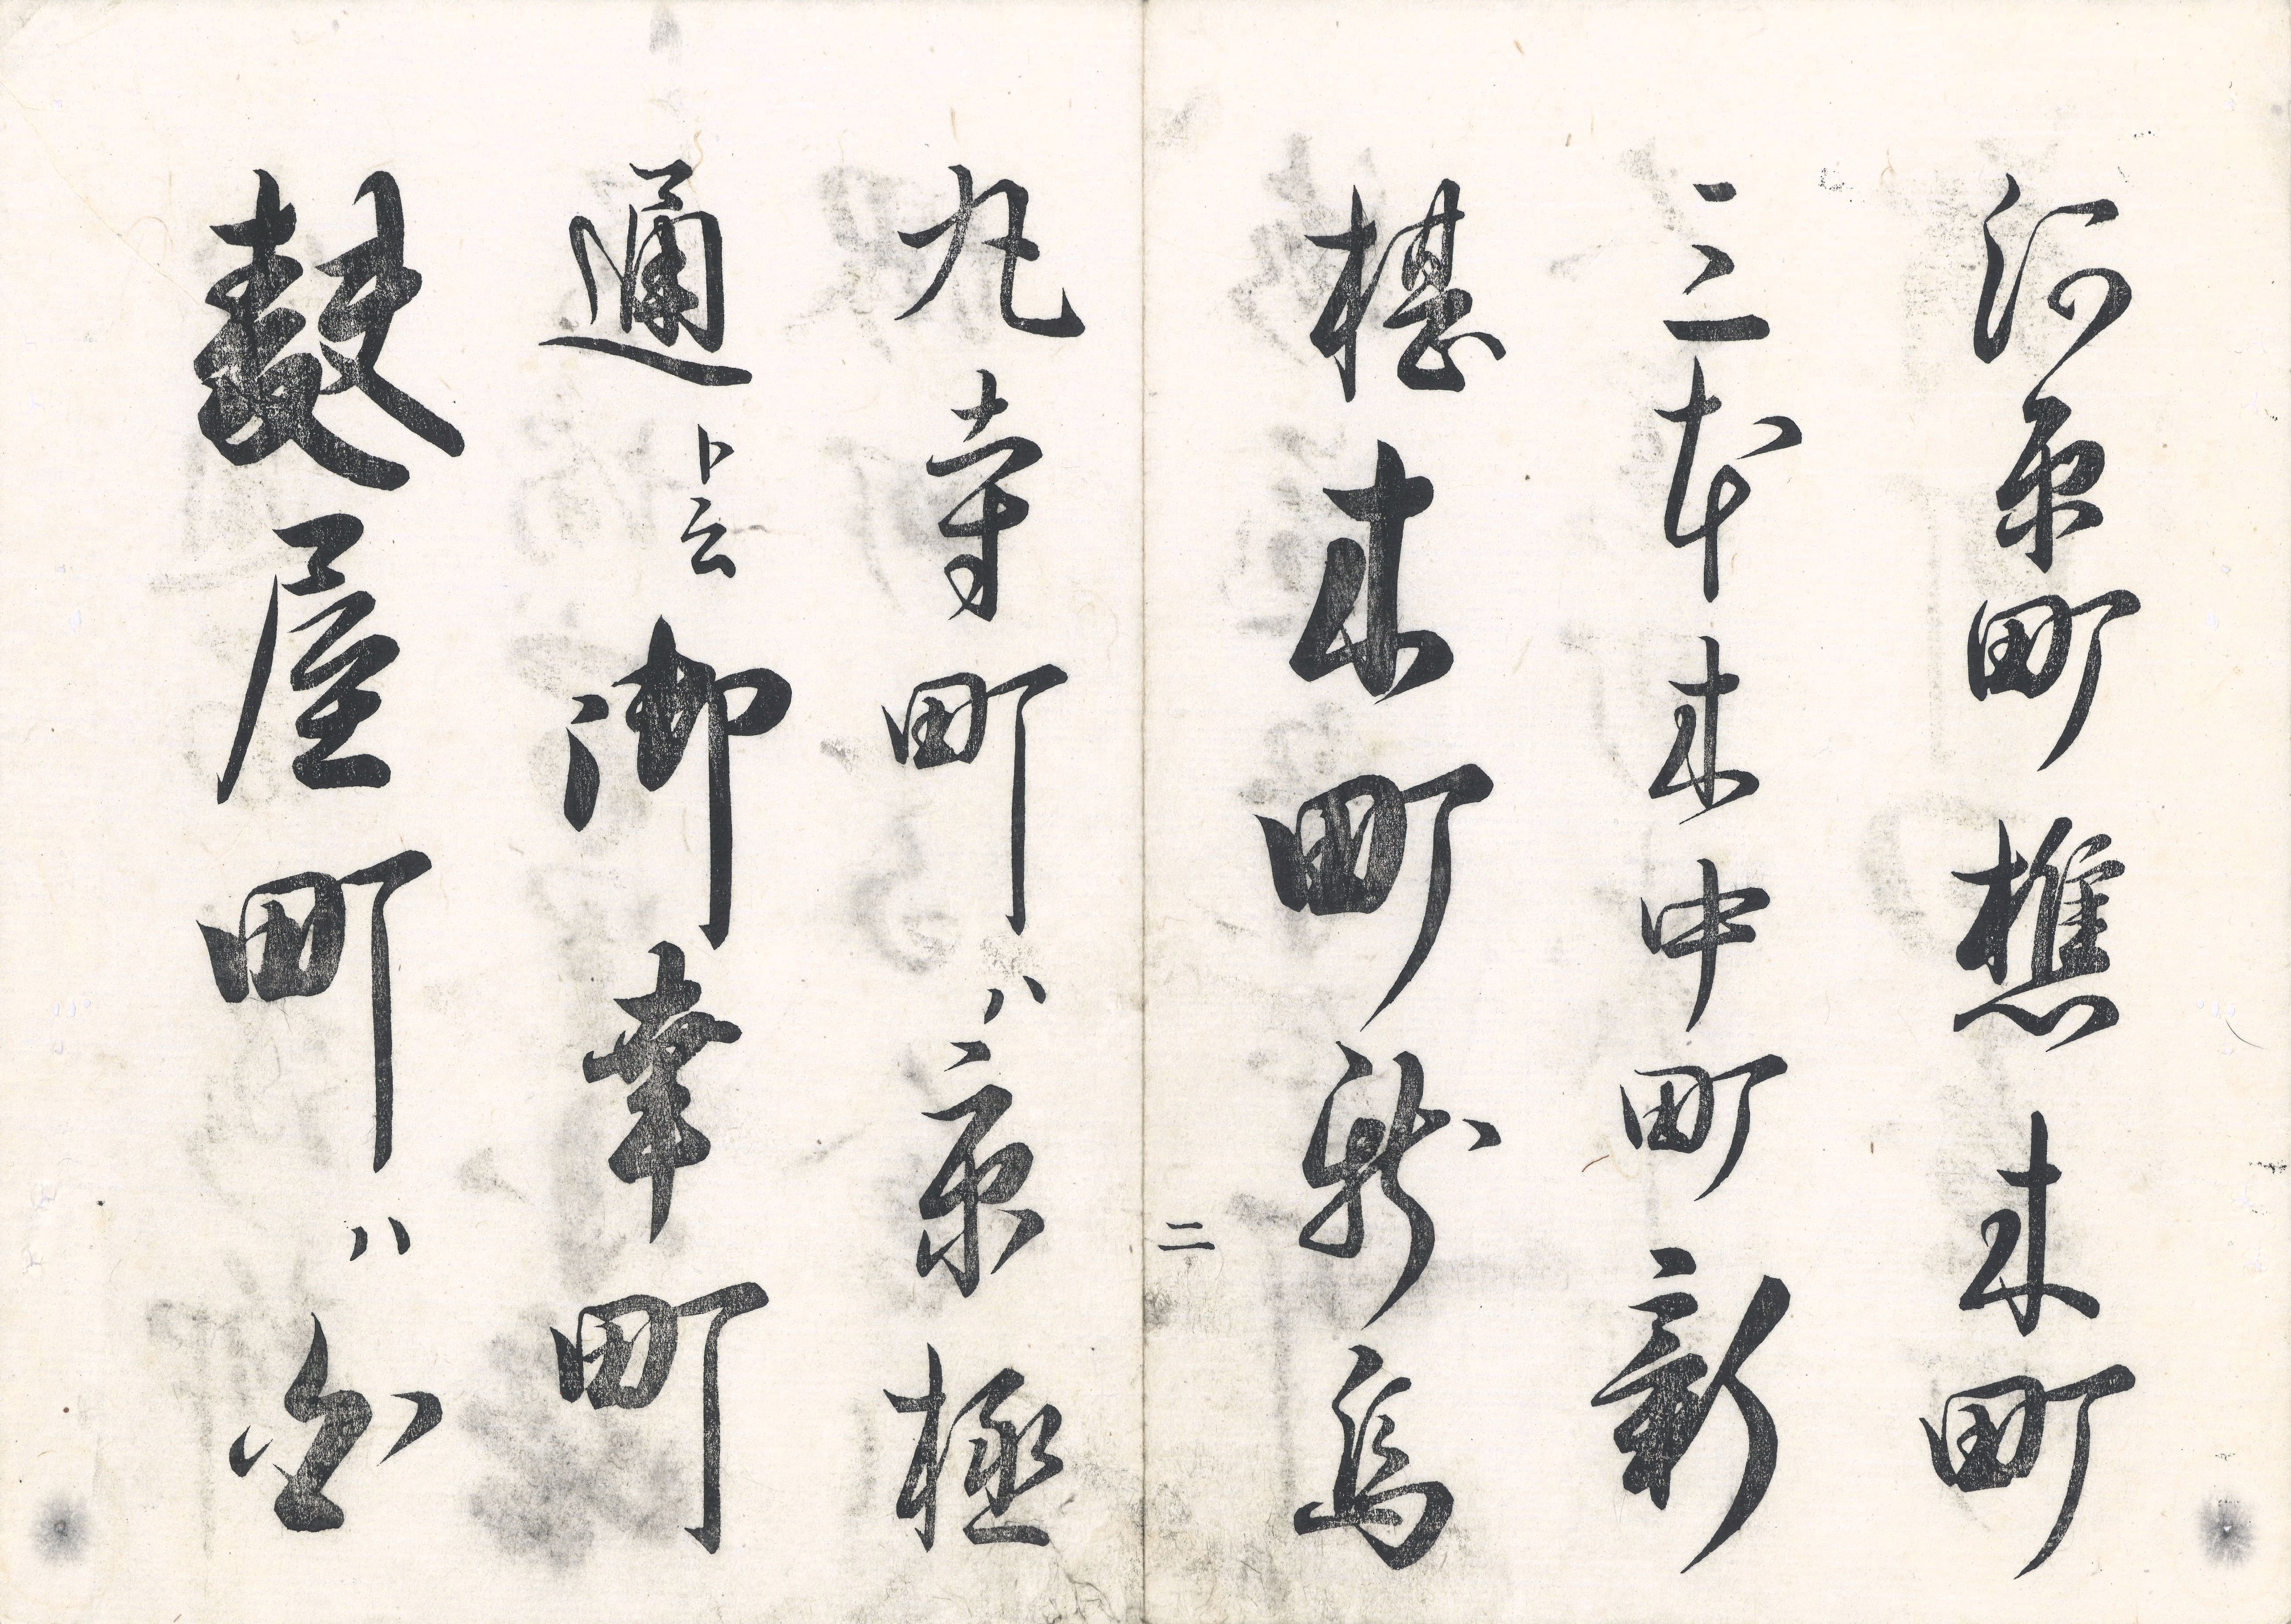 河原町樵木町
三本木中町新
椹木町新烏
丸寺町ハ京極
通ト云御幸町
麩屋町ハ白
二